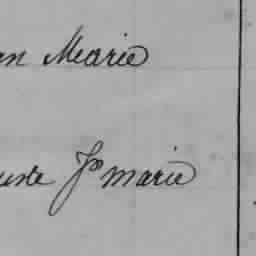 an Marie
uste Jh marie